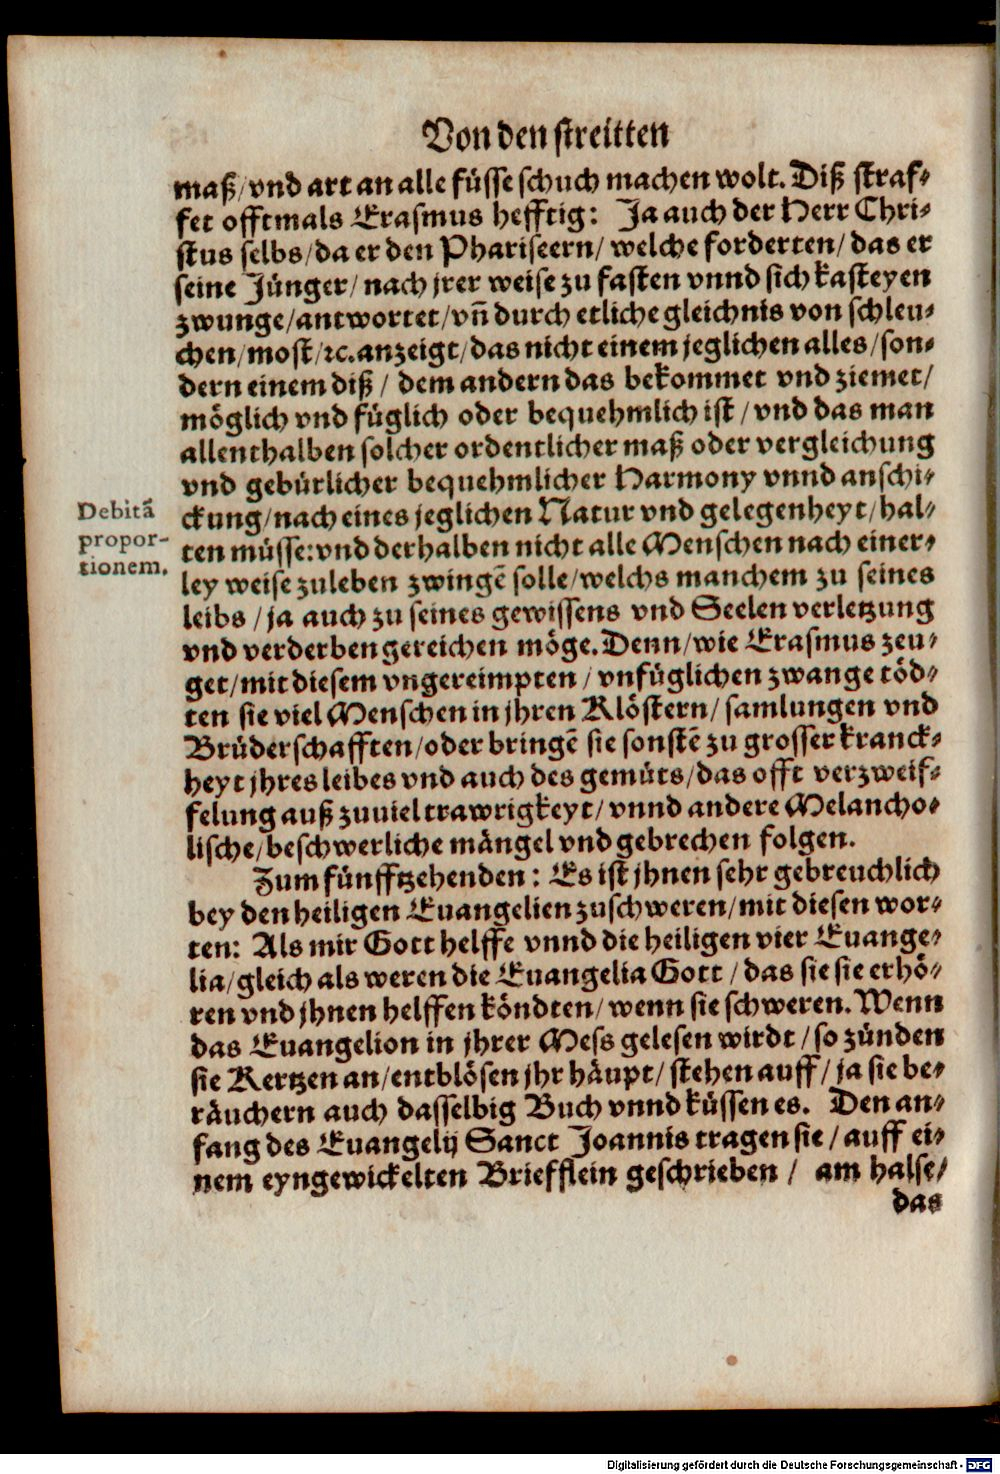 Von den streitten
maß/vnd art an alle füsse schuch machen wolt. Diß straf-
fet offtmals Erasmus hefftig: Ja auch der Herr Chri-
stus selbs/da er den Phariseern/ welche forderten/ das er
seine Jünger/ nach jrer weise zu fasten vnnd sich kasteyen
zwunge/antwortet/vñ durch etliche gleichnis von schleu-
chen/most/ꝛc.anzeigt/das nicht einem jeglichen alles/son-
dern einem diß/ dem andern das bekommet vnd ziemet/
möglich vnd füglich oder bequehmlich ist/vnd das man
allenthalben solcher ordentlicher maß oder vergleichung
vnd gebürlicher bequehmlicher Harmony vnnd anschi-
Debitã
ckung/nach eines jeglichen Natur vnd gelegenheyt/hal-
propor-
ten müsse:vnd derhalben nicht alle Menschen nach einer-
tionem.
ley weise zuleben zwingẽ solle/welchs manchem zu seines
leibs/ja auch zu seines gewissens vnd Seelen verletzung
vnd verderben gereichen möge. Denn/wie Erasmus zeu-
get/mit diesem vngereimpten/vnfüglichen zwange töd-
ten sie viel Menschen in jhren Klöstern/ samlungen vnd
Brüderschafften/oder bringẽ sie sonstẽ zu grosser kranck-
heyt jhres leibes vnd auch des gemüts/das offt verzweif-
felung auß zuuiel trawrigkeyt/vnnd andere Melancho-
lische/beschwerliche mängel vnd gebrechen folgen.
Zum fünfftzehenden: Es ist jhnen sehr gebreuchlich
bey den heiligen Euangelien zuschweren/mit diesen wor-
ten: Als mir Gott helffe vnnd die heiligen vier Euange-
lia/gleich als weren die Euangelia Gott/das sie sie erhö-
ren vnd jhnen helffen köndten/wenn sie schweren. Wenn
das Euangelion in jhrer Mess gelesen wirdt/so zünden
sie Kertzen an/entblösen jhr häupt/stehen auff/ja sie be-
räuchern auch dasselbig Buch vnnd küssen es. Den an-
fang des Euangelij Sanct Joannis tragen sie/auff ei-
nem eyngewickelten Briefflein geschrieben/ am halse/
das
Digitalisierung gefördert durch die Deutsche Forschungsgemeinschaft - DFG